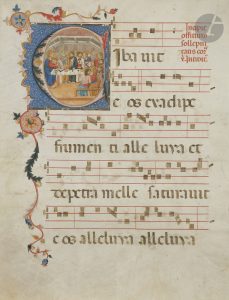 Incipit
officiu
sollepni
tatis cor
Ciba uit
e os exadipe
frumen ti alle luya et
depetra melle saturauit
e os alleluya alleluya